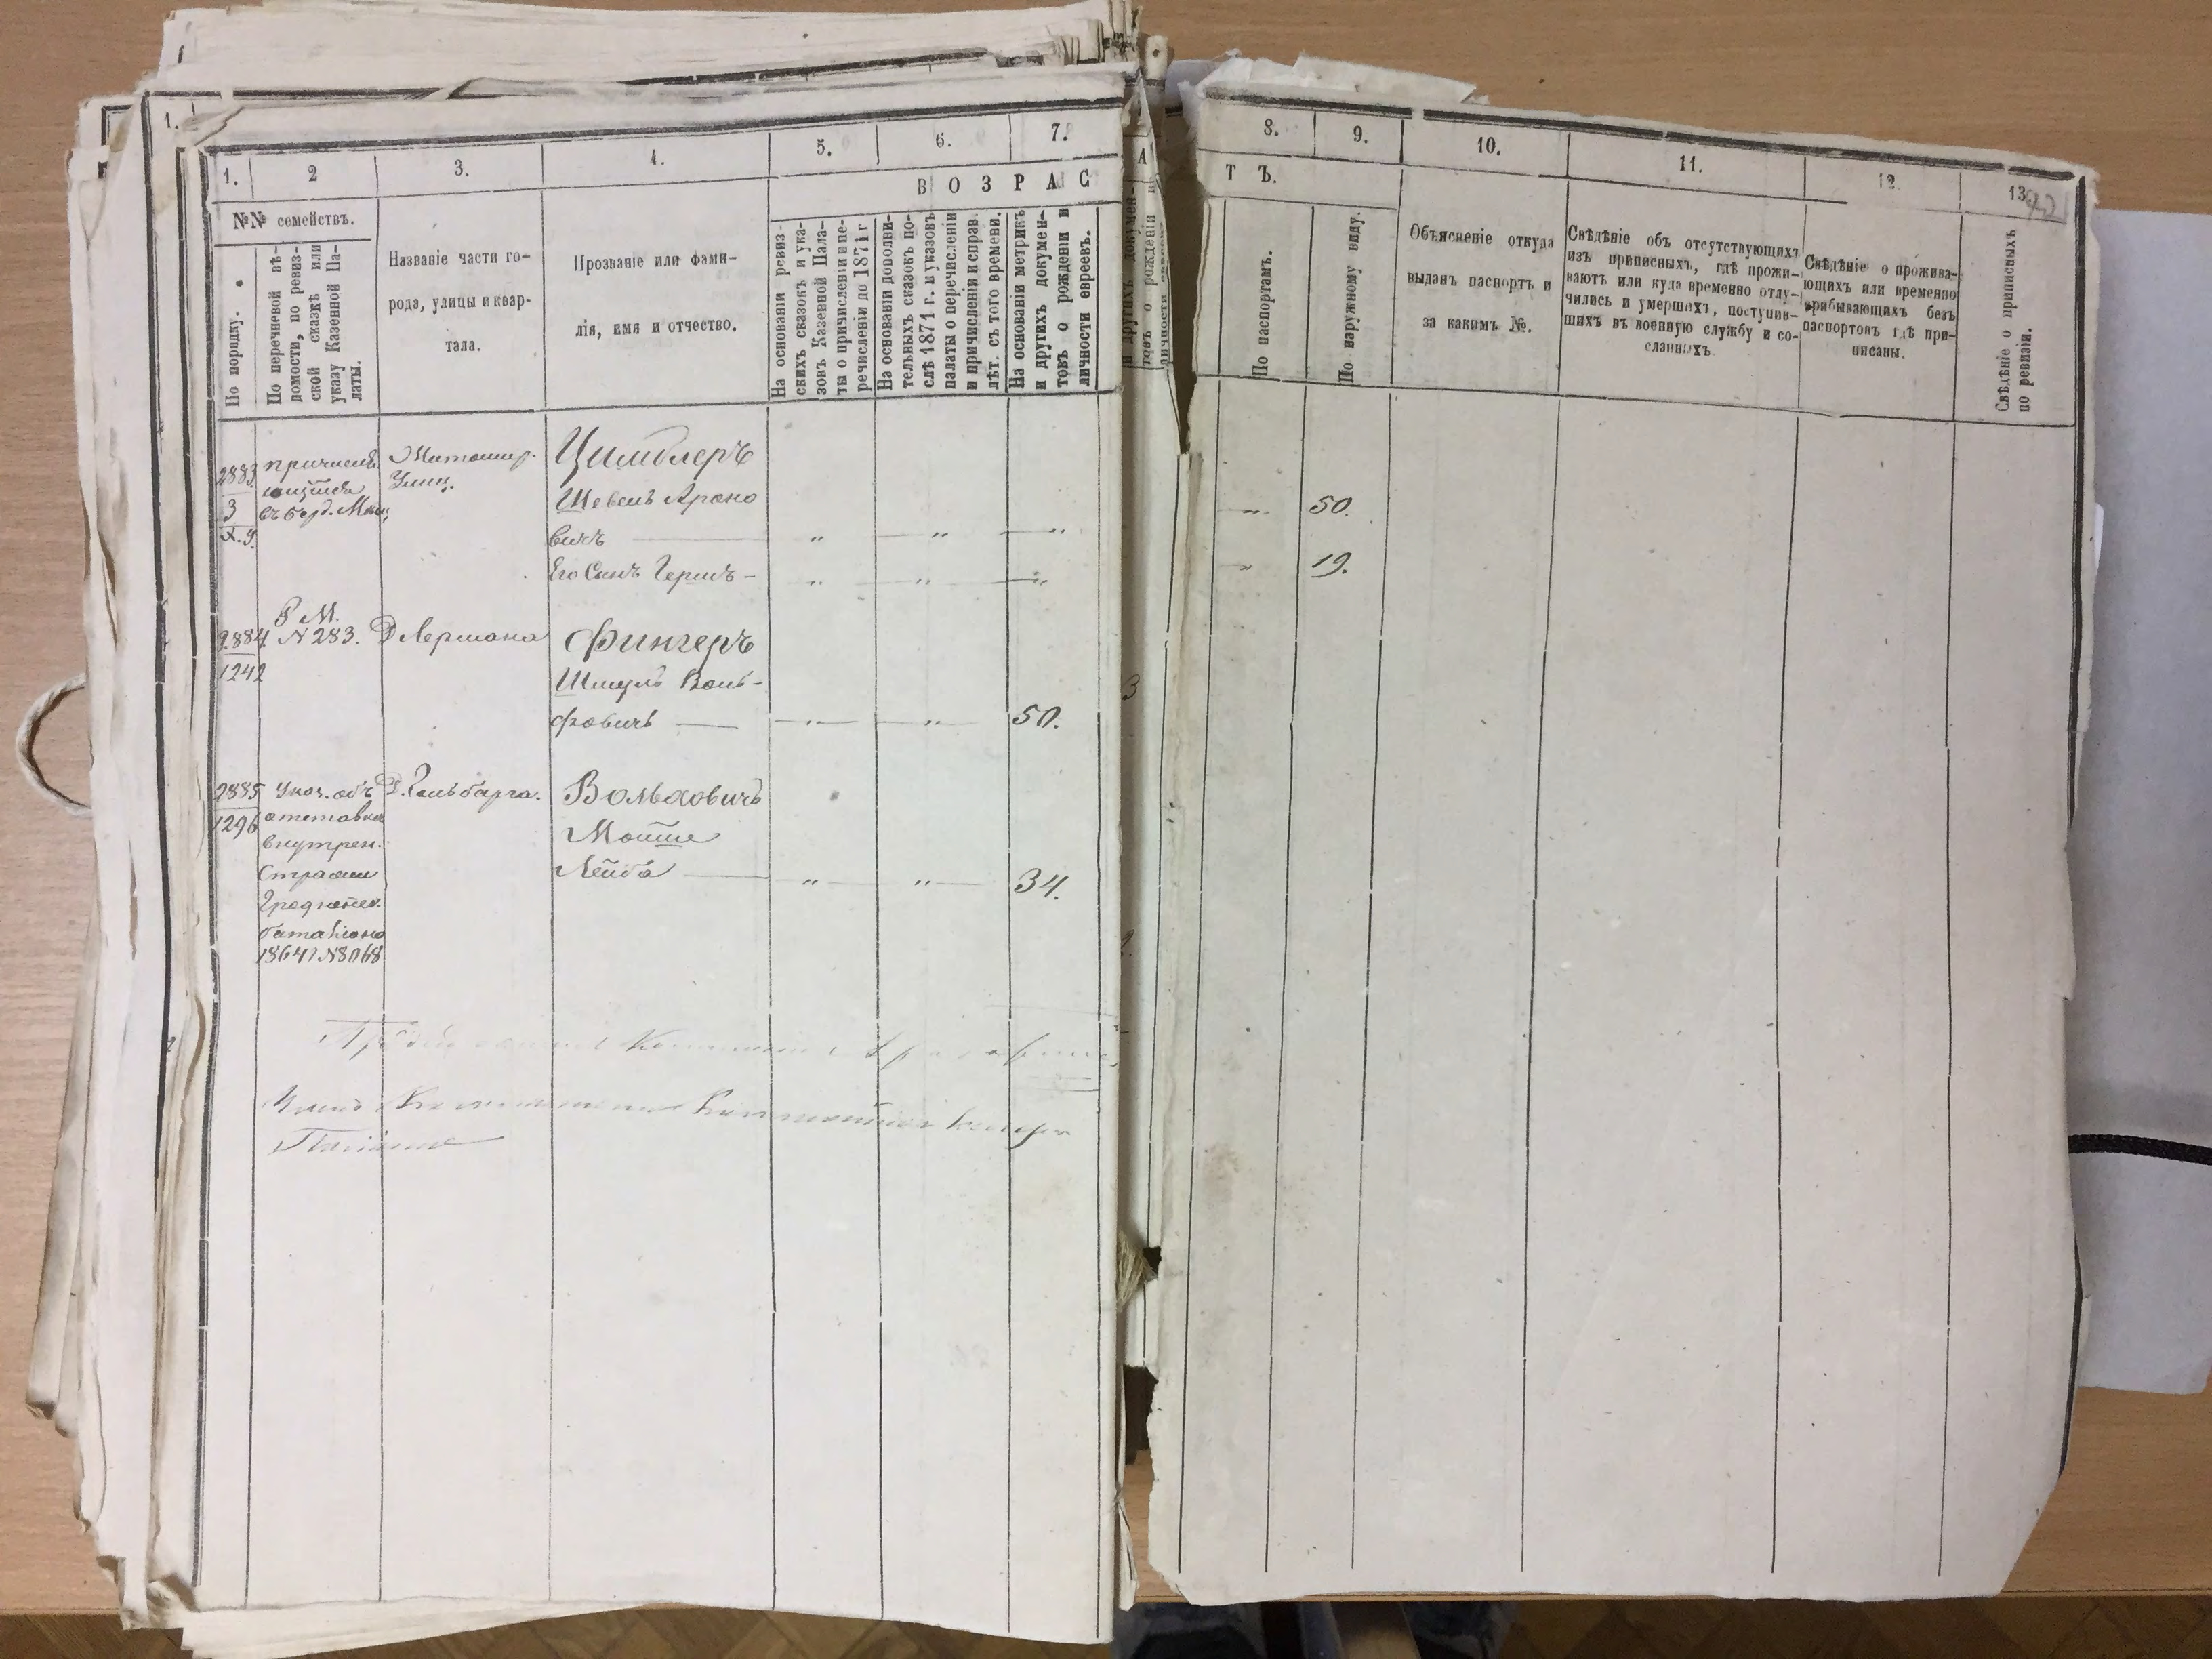 1.
1.
2
3.
4.
5.
6.
7.
8.
9.
10.
11.
12.
13.
№№ семействъ.
По порядку.
По перечневой вѣ-
домости, по ревиз-
ской сказкѣ или
указу Казенной Па-
латы.
Названіе части го-
рода, улицы и квар-
тала.
Прозваніе или фами-
лія, имя и отчество.
В О З Р А С
Т Ъ.
На основаніи ревиз-
скихъ сказокъ и ука-
зовъ Казенной Пала-
ты о причисленіи и пе-
речисленіи до 1871 г
На основаніи дополни-
тельныхъ сказокъ по-
слѣ 1871 г. и указовъ
палаты о перечисленіи
и причисленіи и справ.
лѣт. съ того времени.
На основаніи метрикъ
и другихъ докумен-
товъ о рожденіи и
личности евреевъ.
По паспортамъ.
По наружному виду.
Объясненіе откуда
выданъ паспортъ и
за какимъ №.
Свѣдѣніе объ отсутствующихъ
изъ приписныхъ, гдѣ прожи-
ваютъ или куда временно отлу-
чились и умершихъ, поступив-
шихъ въ военную службу и со-
сланныхъ
Свѣдѣніе о прожива-
ющихъ или временно
прибывающихъ безъ
паспортовъ гдѣ при-
писаны.
Свѣдѣніе о приписныхъ
по ревизіи.
2883
3
Цимблеръ
Шевель Ароно
вичъ " " "
" 50.
Его Сынъ Гершъ - " " "
" 19.
2884
1242
N 283.
Д Лермана
Фингеръ
Шмуль Воль-
фовичъ " " 50.
2885
1296
Указ. объ
отставк
внутрен.
Стражи
Гродненск.
баталіона
1864 г N 8068
Д. Гольбарга.
Вольховичъ
Мошие
Лейба " " 34.